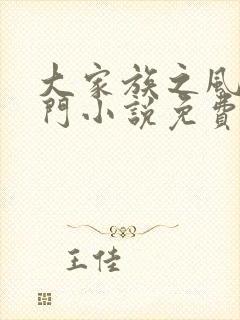 大家族之風
門小說免費
王佳